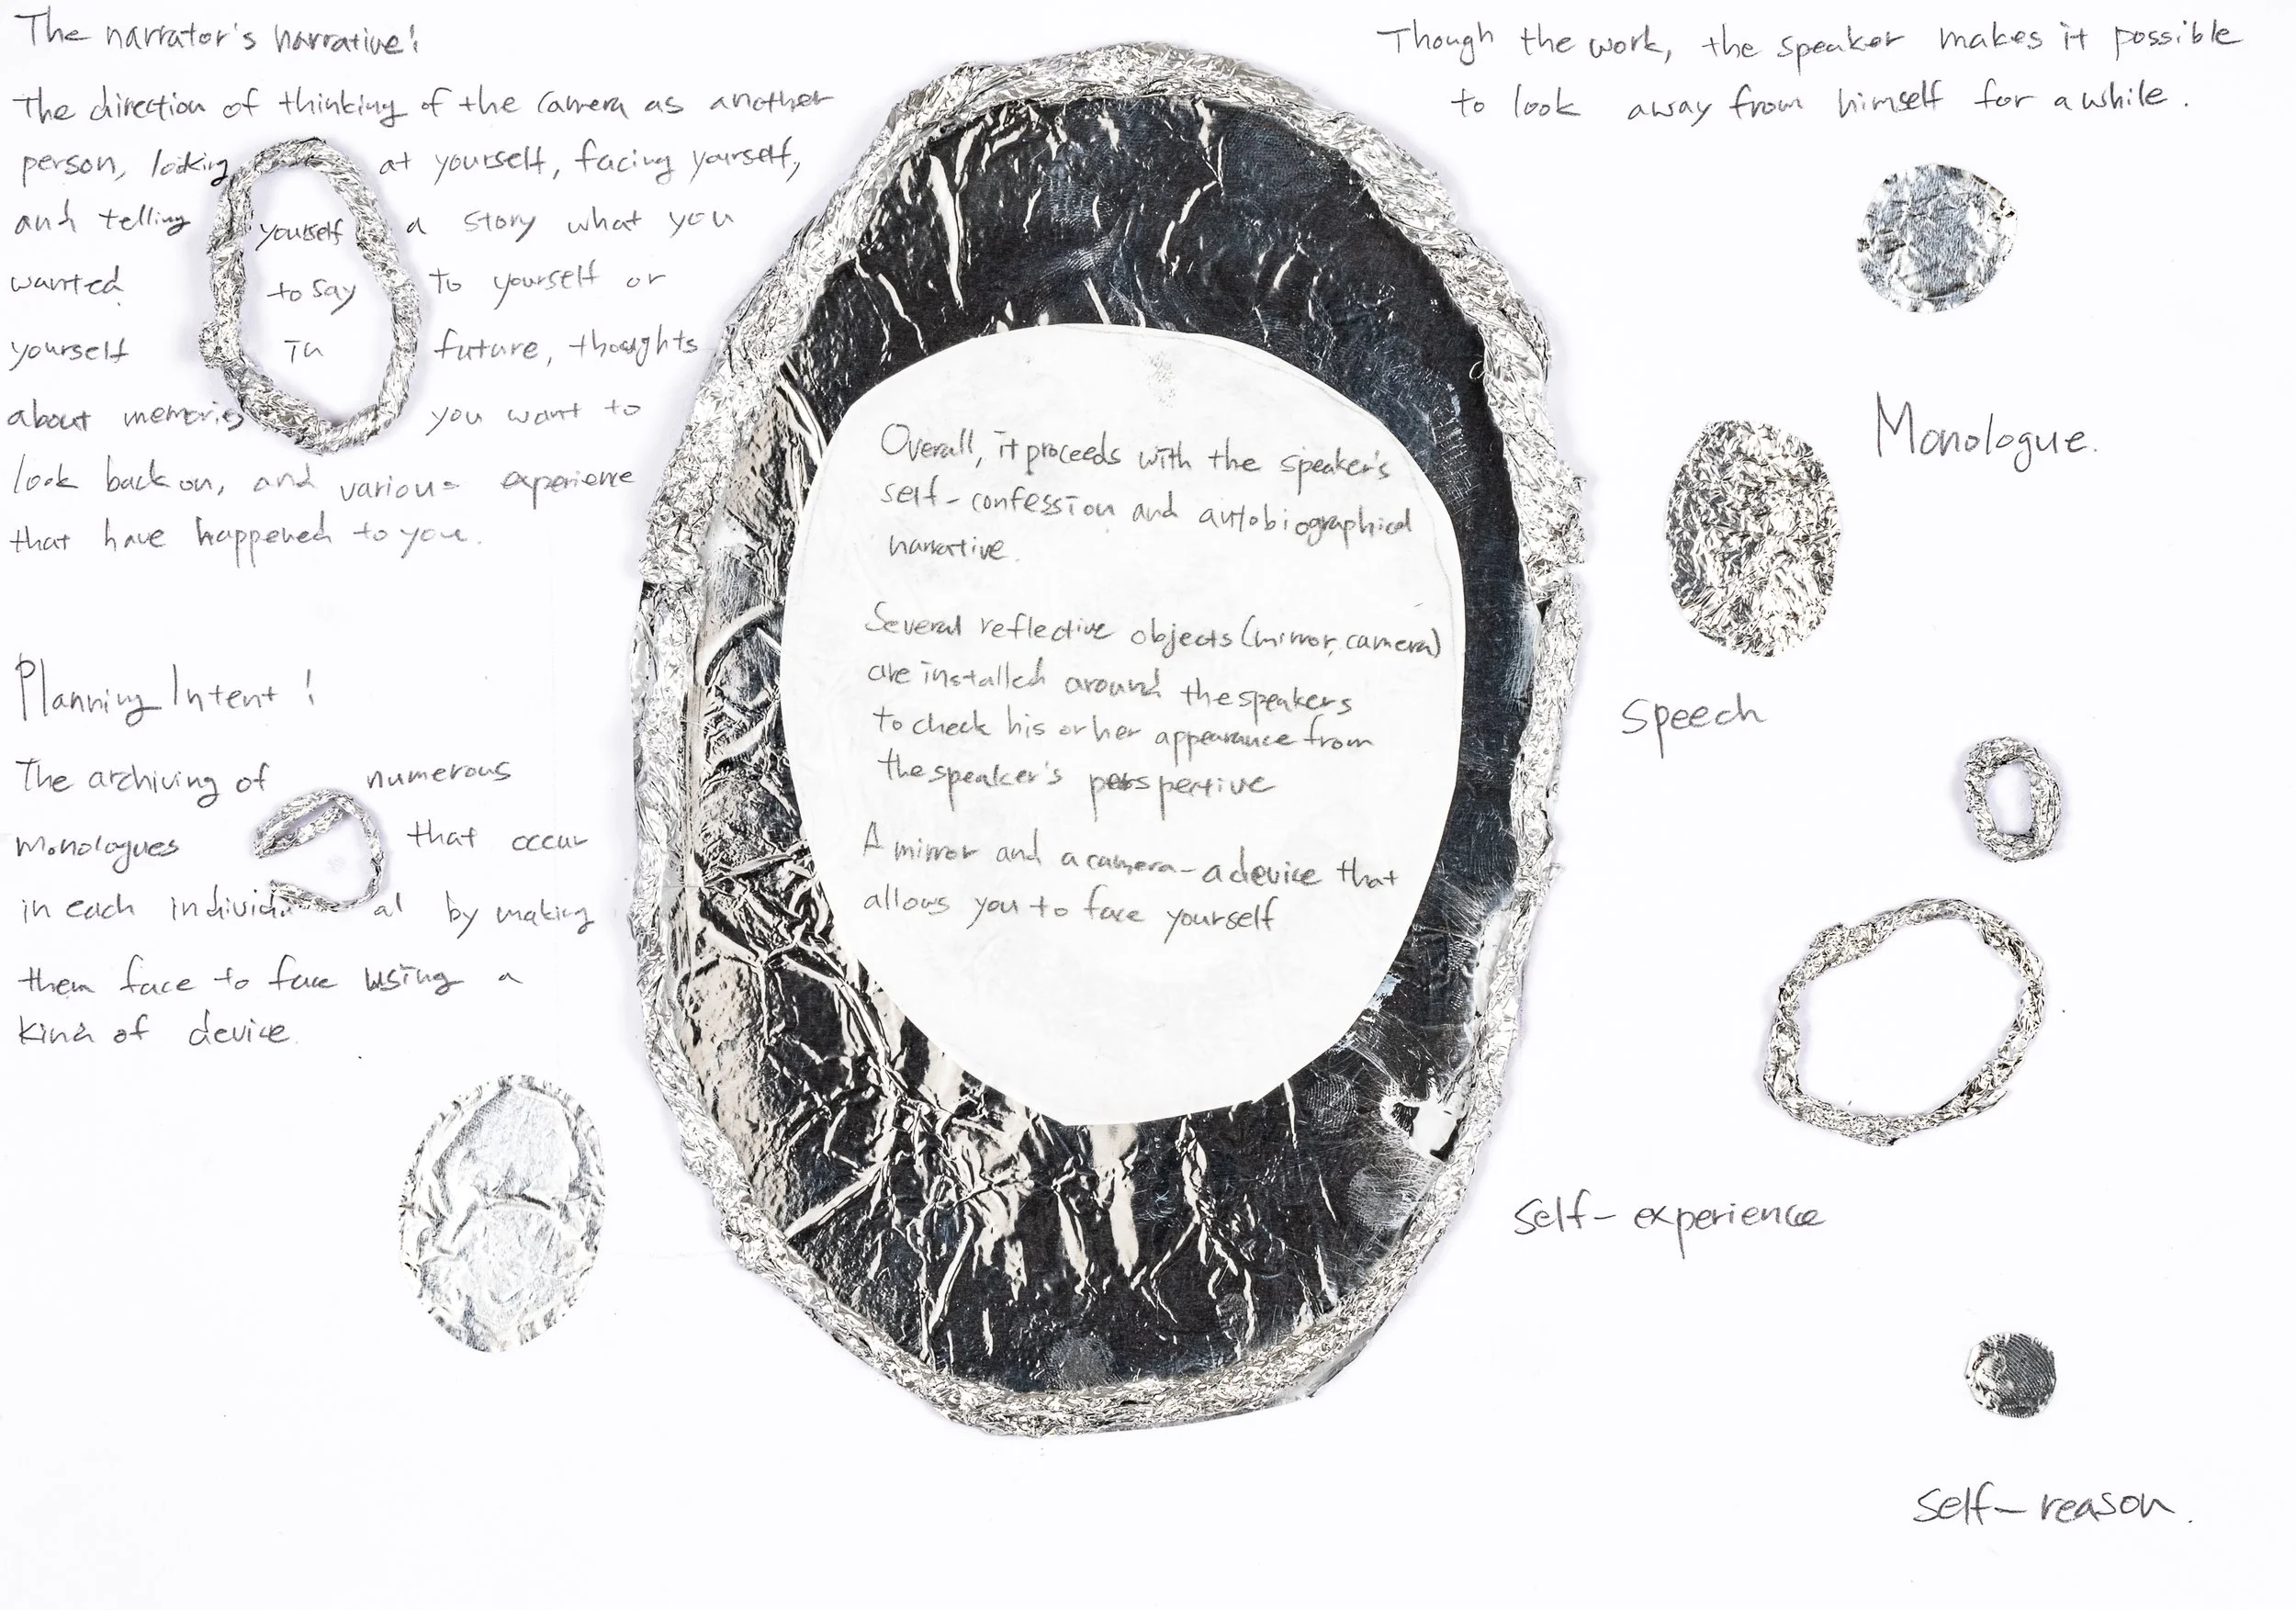 The narrator's narrative!
The direction of thinking of the camera as another
person, looking at yourself, facing yourself,
and telling yourself a story what you
wanted to say to yourself or
yourself In future, thoughts
about memories you want to
look back on, and various experience
that have happened to you.
Planning Intent!
The archiving of numerous
monologues that occur
in each individual by making
them face to face using a
kind of device.
Overall, it proceeds with the speaker's
self-confession and autobiographical
narrative.
Several reflective objects (mirror, camera)
are installed around the speakers
to check his or her appearance from
the speaker's perspective
A mirror and a camera - a device that
allows you to face yourself
Though the work, the speaker makes it possible
to look away from himself for a while.
Monologue.
Speech
Self-experience
Self-reason.